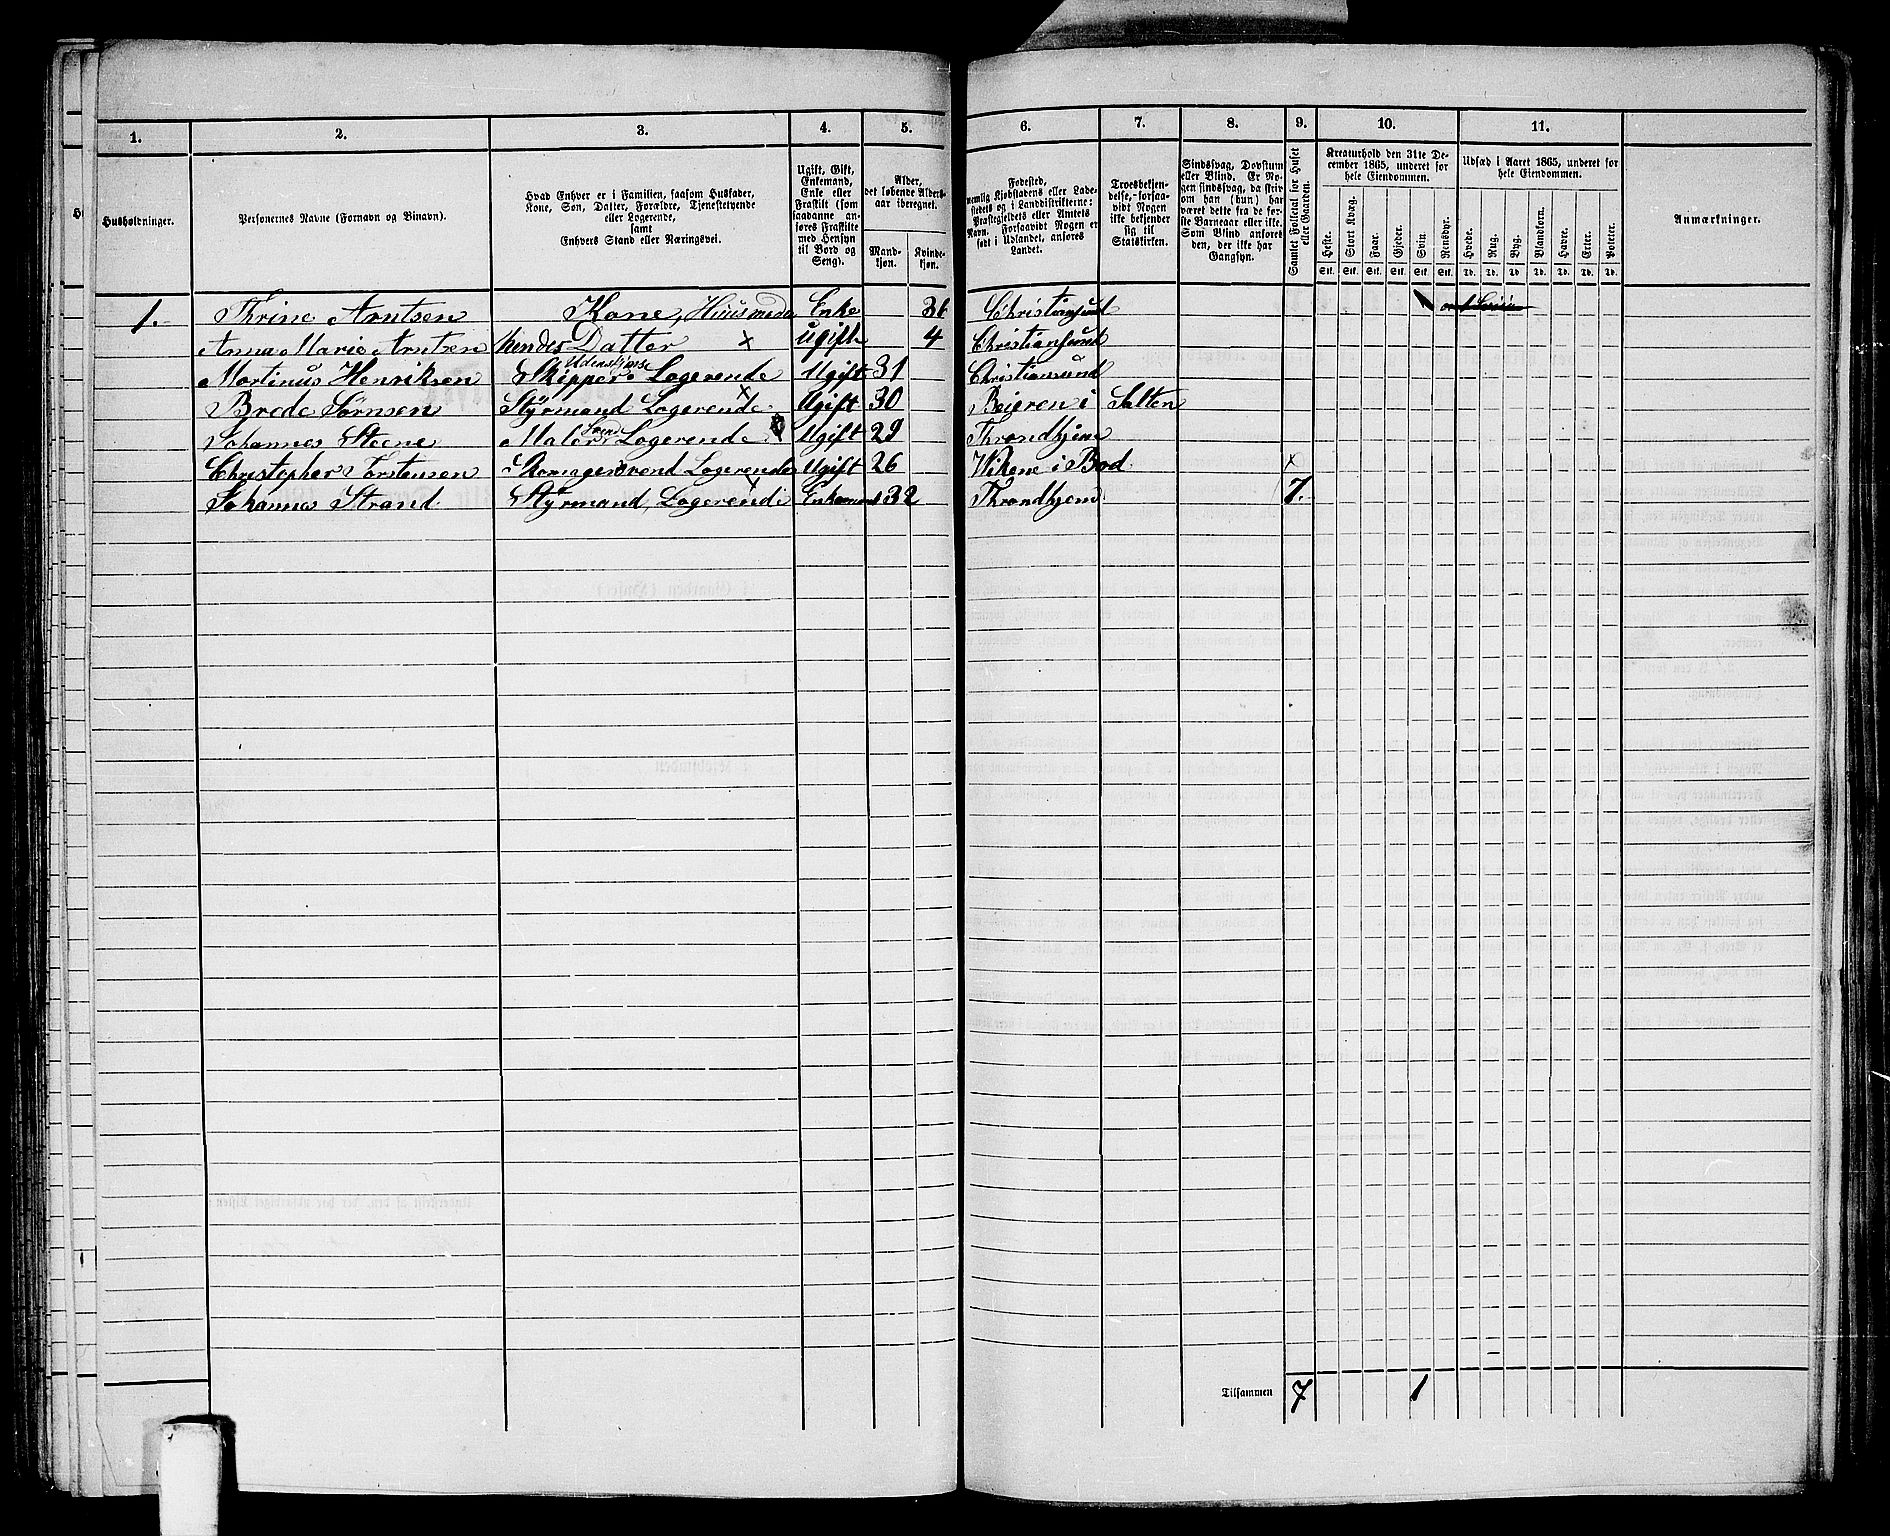 1. 2. 3. 4. 5. 6. 7. 8. 9. 10. 11.
Husholdninger.
Personernes Navne (Fornavn og Binavn).
Hvad Enhver er i Familien, saasom Husfader,
Kone, Søn, Datter, Forældre, Tjenestetyende
eller Logerende,
samt
Enhvers Stand eller Næringsvei.
Ugift, Gift,
Enkemand,
Enke eller
Fraskilt (som
saadanne an-
føres Fraskilte
med Hensyn
til Bord og
Seng).
Alder,
det løbende Alders-
aar iberegnet.
Mand-
kjøn.
Kvinde-
kjøn.
Fødested,
nemlig Kjøbstadens eller Lade-
stedets og i Landdistrikterne:
Præstegjeldets eller Amtets
Navn. Forsaavidt Nogen er
født i Udlandet, anføres
Landet.
Troesbekjen-
delse, forsaa-
vidt Nogen
ikke bekjender
sig til
Statskirken.
Sindssvag, Døvstum
eller Blind. Er No-
gen sindssvag, da skriv
om han (hun) har
været dette fra de før-
ste Barneaar eller ikke.
Som Blind anføres
den, der ikke har
Gangsyn.
Samlet Folketal for Huset
eller Gaarden.
Kreaturhold den 31te De-
cember 1865, underet for
hele Eiendommen.
Heste. Stort Kvæg. Faar. Gjeder. Svin. Rensdyr.
Stk. Stk. Stk. Stk. Stk. Stk.
Udsæd i Aaret 1865, underet for
hele Eiendommen.
Hvede. Rug. Byg. Blandkorn. Havre. Erter. Poteter.
Td. Td. Td. Td. Td. Td. Td.
Anmærkninger.
1. Thrine Arntsen Kone, Huusmoder Enke 36 Christiansund
Anna Marie Arntsen Hendes Datter x Ugift 4 Christiansund
Martinus Henriksen Skipper Udenskjærs Logerende Ugift 31 Christiansund
Brode Sørnsen Styrmand Logerende x Ugift 30 Beieren i Salten
Johannes Steene Maler Svend Logerende Ugift 29 Throndhjem
Christopher Torstensen Logerende Ugift 26 Wikene i Bod x
Johannes Strand Styrmand, Logerende x Enkemand 32 Throndhjem 7.
Tilsammen 7 1